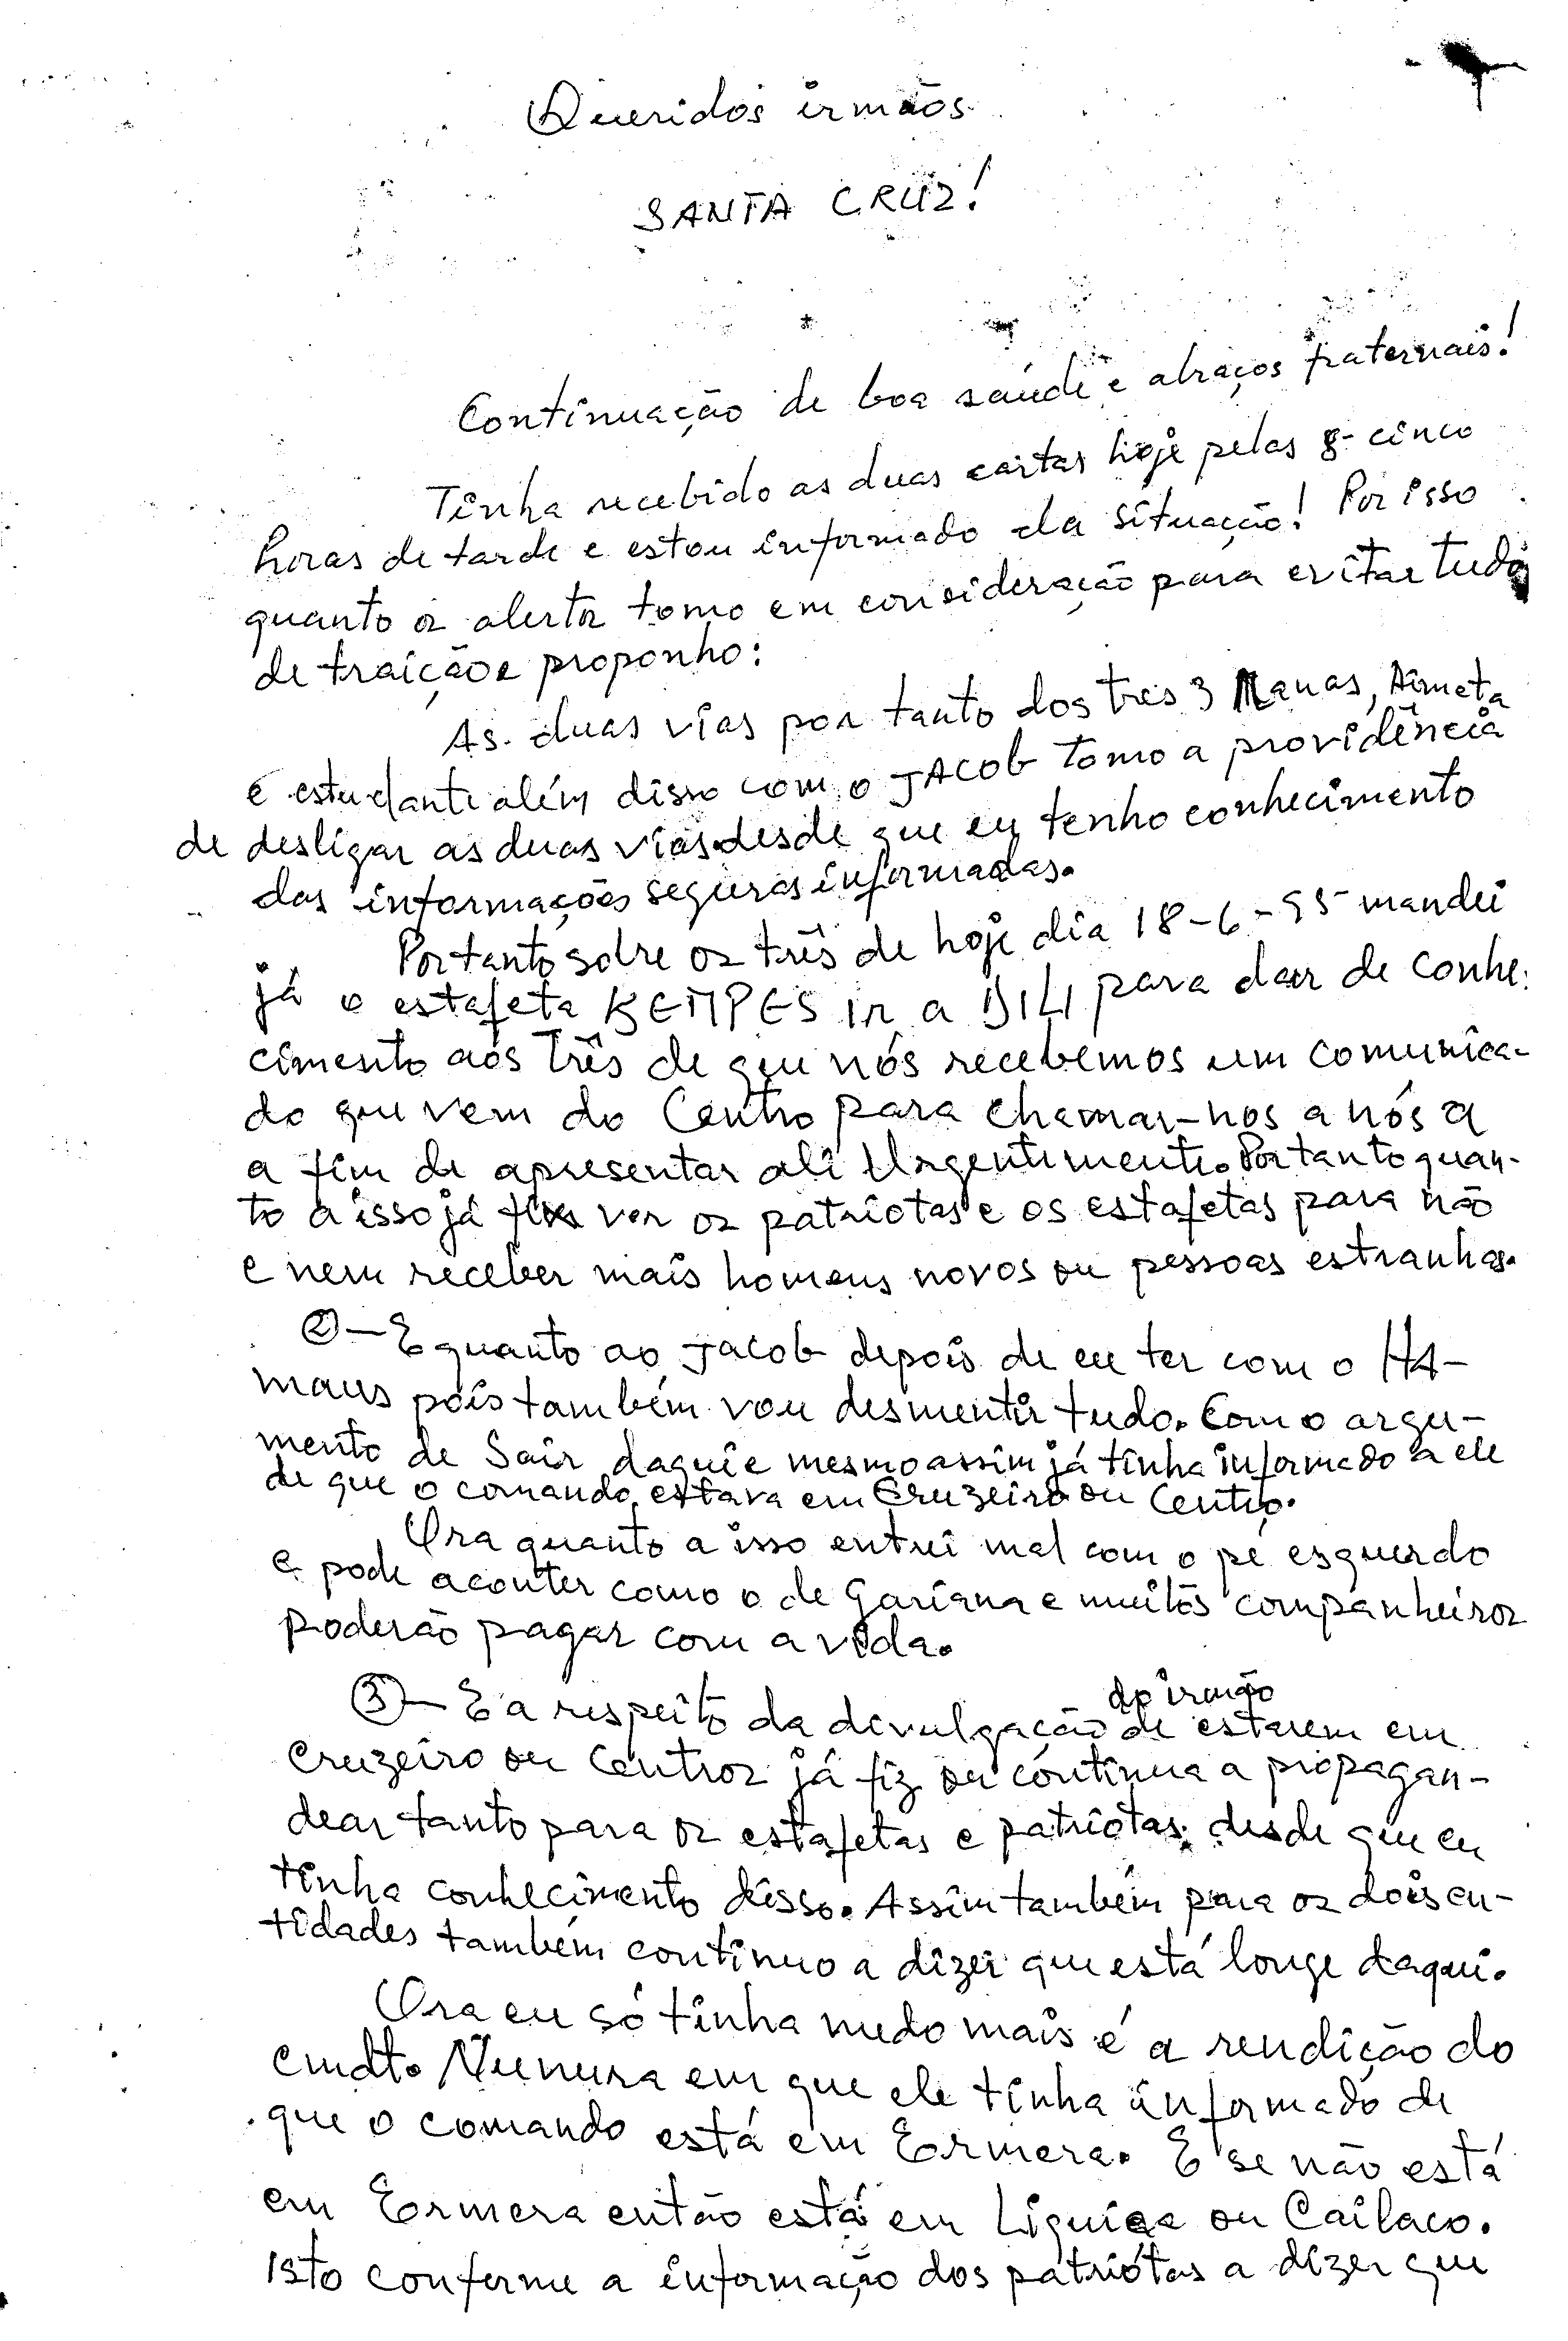 Queridos irmãos
SANTA CRUZ!
Continuação de boa saúde e abraços fraternais!
Tinha recebido as duas cartas hoje pelas cinco
horas de tarde e estou informado da situação! Por isso
quanto a alerta tomo em consideração para evitar tudo
de traição e proponho:
As duas vias por tanto dos tres 3 Manas,
e estudante além disso com o JACOB tomo a providência
de desligar as duas vias desde que eu tenho conhecimento
das informações seguras informadas.
Portanto sobre os três de hoje dia 18-6-95 mandei
já o estafeta KEMPES ir a DILI para dar de conhe-
cimento aos Três de que nós recebemos um comunica-
do que vem do Centro para chamar-nos a nós a
a fim de apresentar ali Urgentimente. Portanto quan-
to a isso já ver os patriotas e os estafetas para não
e nem receber mais homens novos ou pessoas estranhas.
② - E quanto ao Jacob depois de eu ter com o HA-
maus pois também vou desmentir tudo. Com o argu-
mento de Sair daqui e mesmo assim já tinha informado a ele
de que o comando estava em Cruzeiro ou Centro.
Ora quanto a isso entrei mal com o pé esquerdo
e pode aconter como o de Gariana e muitos companheiros
poderão pagar com a vida.
③ - E a respeito da divulgação do irmão de estarem em
Cruzeiro ou Centros já fiz ou continua a propagan-
dear tanto para os estafetas e patriotas desde que eu
tinha conhecimento disso. Assim também para os dois en-
tidades também continuo a dizer que está longe daqui.
Ora eu só tinha medo mais é a rendição do
cmdt. Nunura em que ele tinha informado de
que o comando está em Ermera. E se não está
em Ermera então está em Liquiça ou Cailaco.
Isto conforme a informação dos patriótas a dizer que